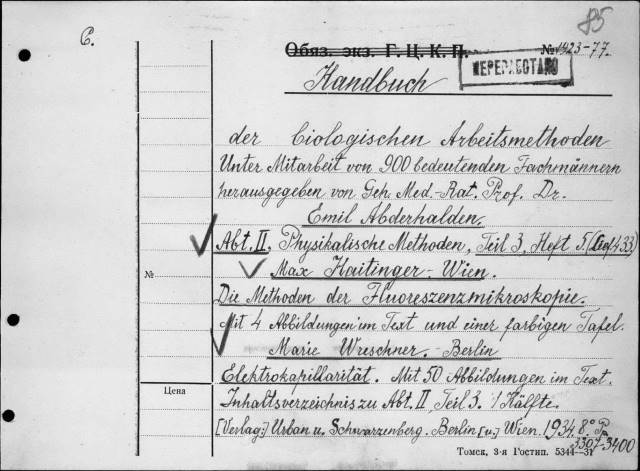 85
С.
Обяз. экз. Г. Ц. К. П.
№ 1423-77.
ПЕРЕРАБОТАНО
Handbuch
der biologischen Arbeitsmethoden
Unter Mitarbeit von 900 bedeutenden Fachmännern
herausgegeben von Geh. Med.-Rat. Prof. Dr.
Emil Abderhalden.
Abt. II. Physikalische Methoden, Teil 3, Heft 5. (Lief 433)
№ Max Haitinger - Wien.
Die Methoden der Fluoreszenzmikroskopie.
Mit 4 Abbildungen im Text und einer farbigen Tafel.
Marie Wreschner. Berlin
Elektrokapillarität. Mit 50 Abbildungen im Text.
Цена
Inhaltsverzeichnis zu Abt. II, Teil 3. 1 Hälfte.
[Verlag:] Urban u. Schwarzenberg. Berlin [u.] Wien. 1934. 8°
3307-3400
Томск, 3-я Гостип. 5344—31